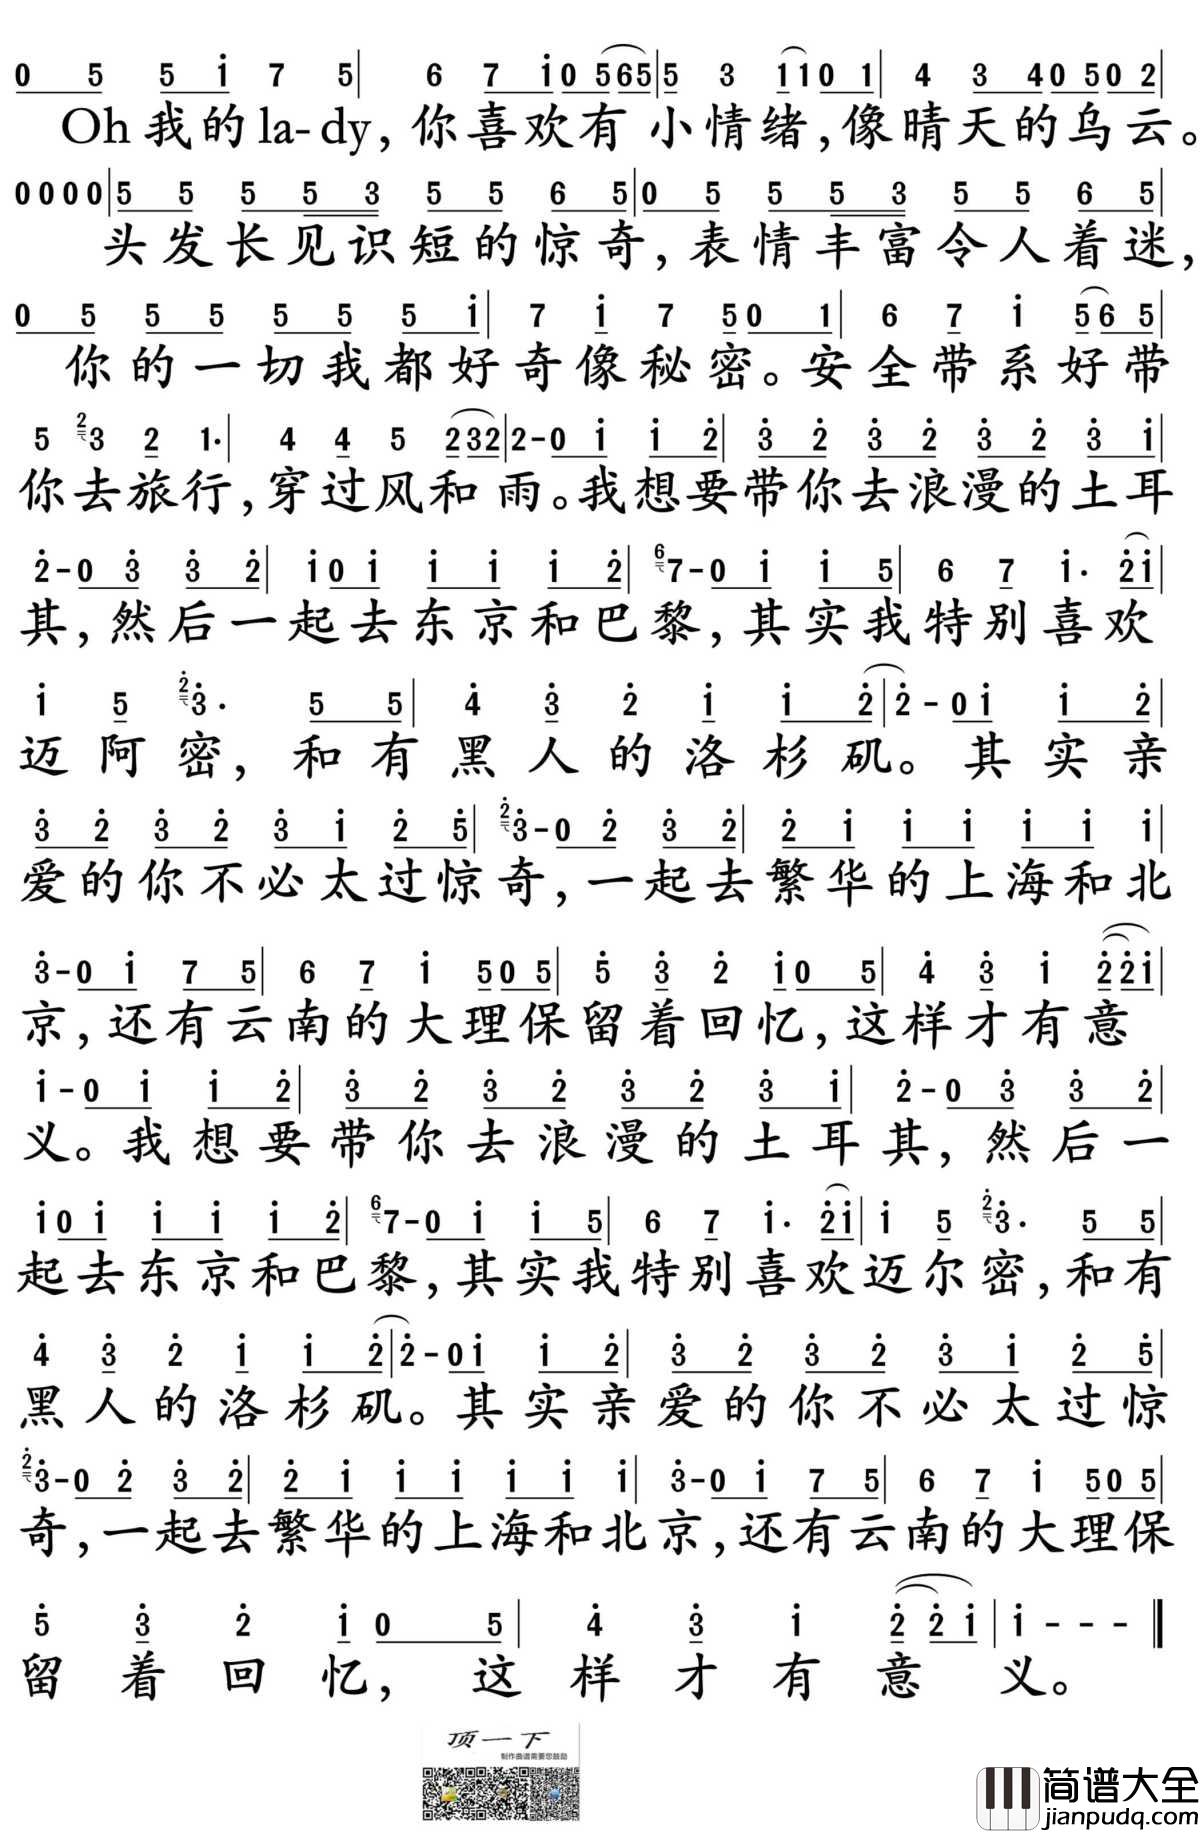 0 5 5 i 7 5| 6 7 i0 565|5 3 110 1| 4 3 40 50 2|
Oh我的la-dy,你喜欢有小情绪,像晴天的乌云。
0000|5 5 5 5 3 5 5 6 5|0 5 5 5 3 5 5 6 5|
头发长见识短的惊奇,表情丰富令人着迷,
0 5 5 5 5 5 5 i| 7 i 7 50 1| 6 7 i 56 5|
你的一切我都好奇像秘密。安全带系好带
5 23 2 1·| 4 4 5 232|2-0 i i 2|3 2 3 2 3 2 3 i|
你去旅行,穿过风和雨。我想要带你去浪漫的土耳
2-0 3 3 2|i0 i i i i 2|67-0 i i 5| 6 7 i· 2i|
其,然后一起去东京和巴黎,其实我特别喜欢
i 5 23· 5 5| 4 3 2 i i 2|2-0i i 2|
迈阿密,和有黑人的洛杉矶。其实亲
3 2 3 2 3 i 2 5|23-0 2 3 2|2 i i i i i i|
爱的你不必太过惊奇,一起去繁华的上海和北
3-0 i 7 5| 6 7 i 50 5| 5 3 2 i0 5| 4 3 i 22i|
京,还有云南的大理保留着回忆,这样才有意
i-0 i i 2|3 2 3 2 3 2 3 i| 2-0 3 3 2|
义。我想要带你去浪漫的土耳其,然后一
i0 i i i i 2|67-0 i i 5| 6 7 i· 2i|i 5 23· 5 5|
起去东京和巴黎,其实我特别喜欢迈尔密,和有
4 3 2 i i 2|2-0i i 2|3 2 3 2 3 i 2 5|
黑人的洛杉矶。其实亲爱的你不必太过惊
23-0 2 3 2|2 i i i i i i|3-0 i 7 5| 6 7 i 50 5|
奇,一起去繁华的上海和北京,还有云南的大理保
5 3 2 i0 5| 4 3 i 2 2 i|i - - -‖
留着回忆,这样才有意义。
顶一下
制作曲谱需要您鼓励
简谱大全
jianpudq.com